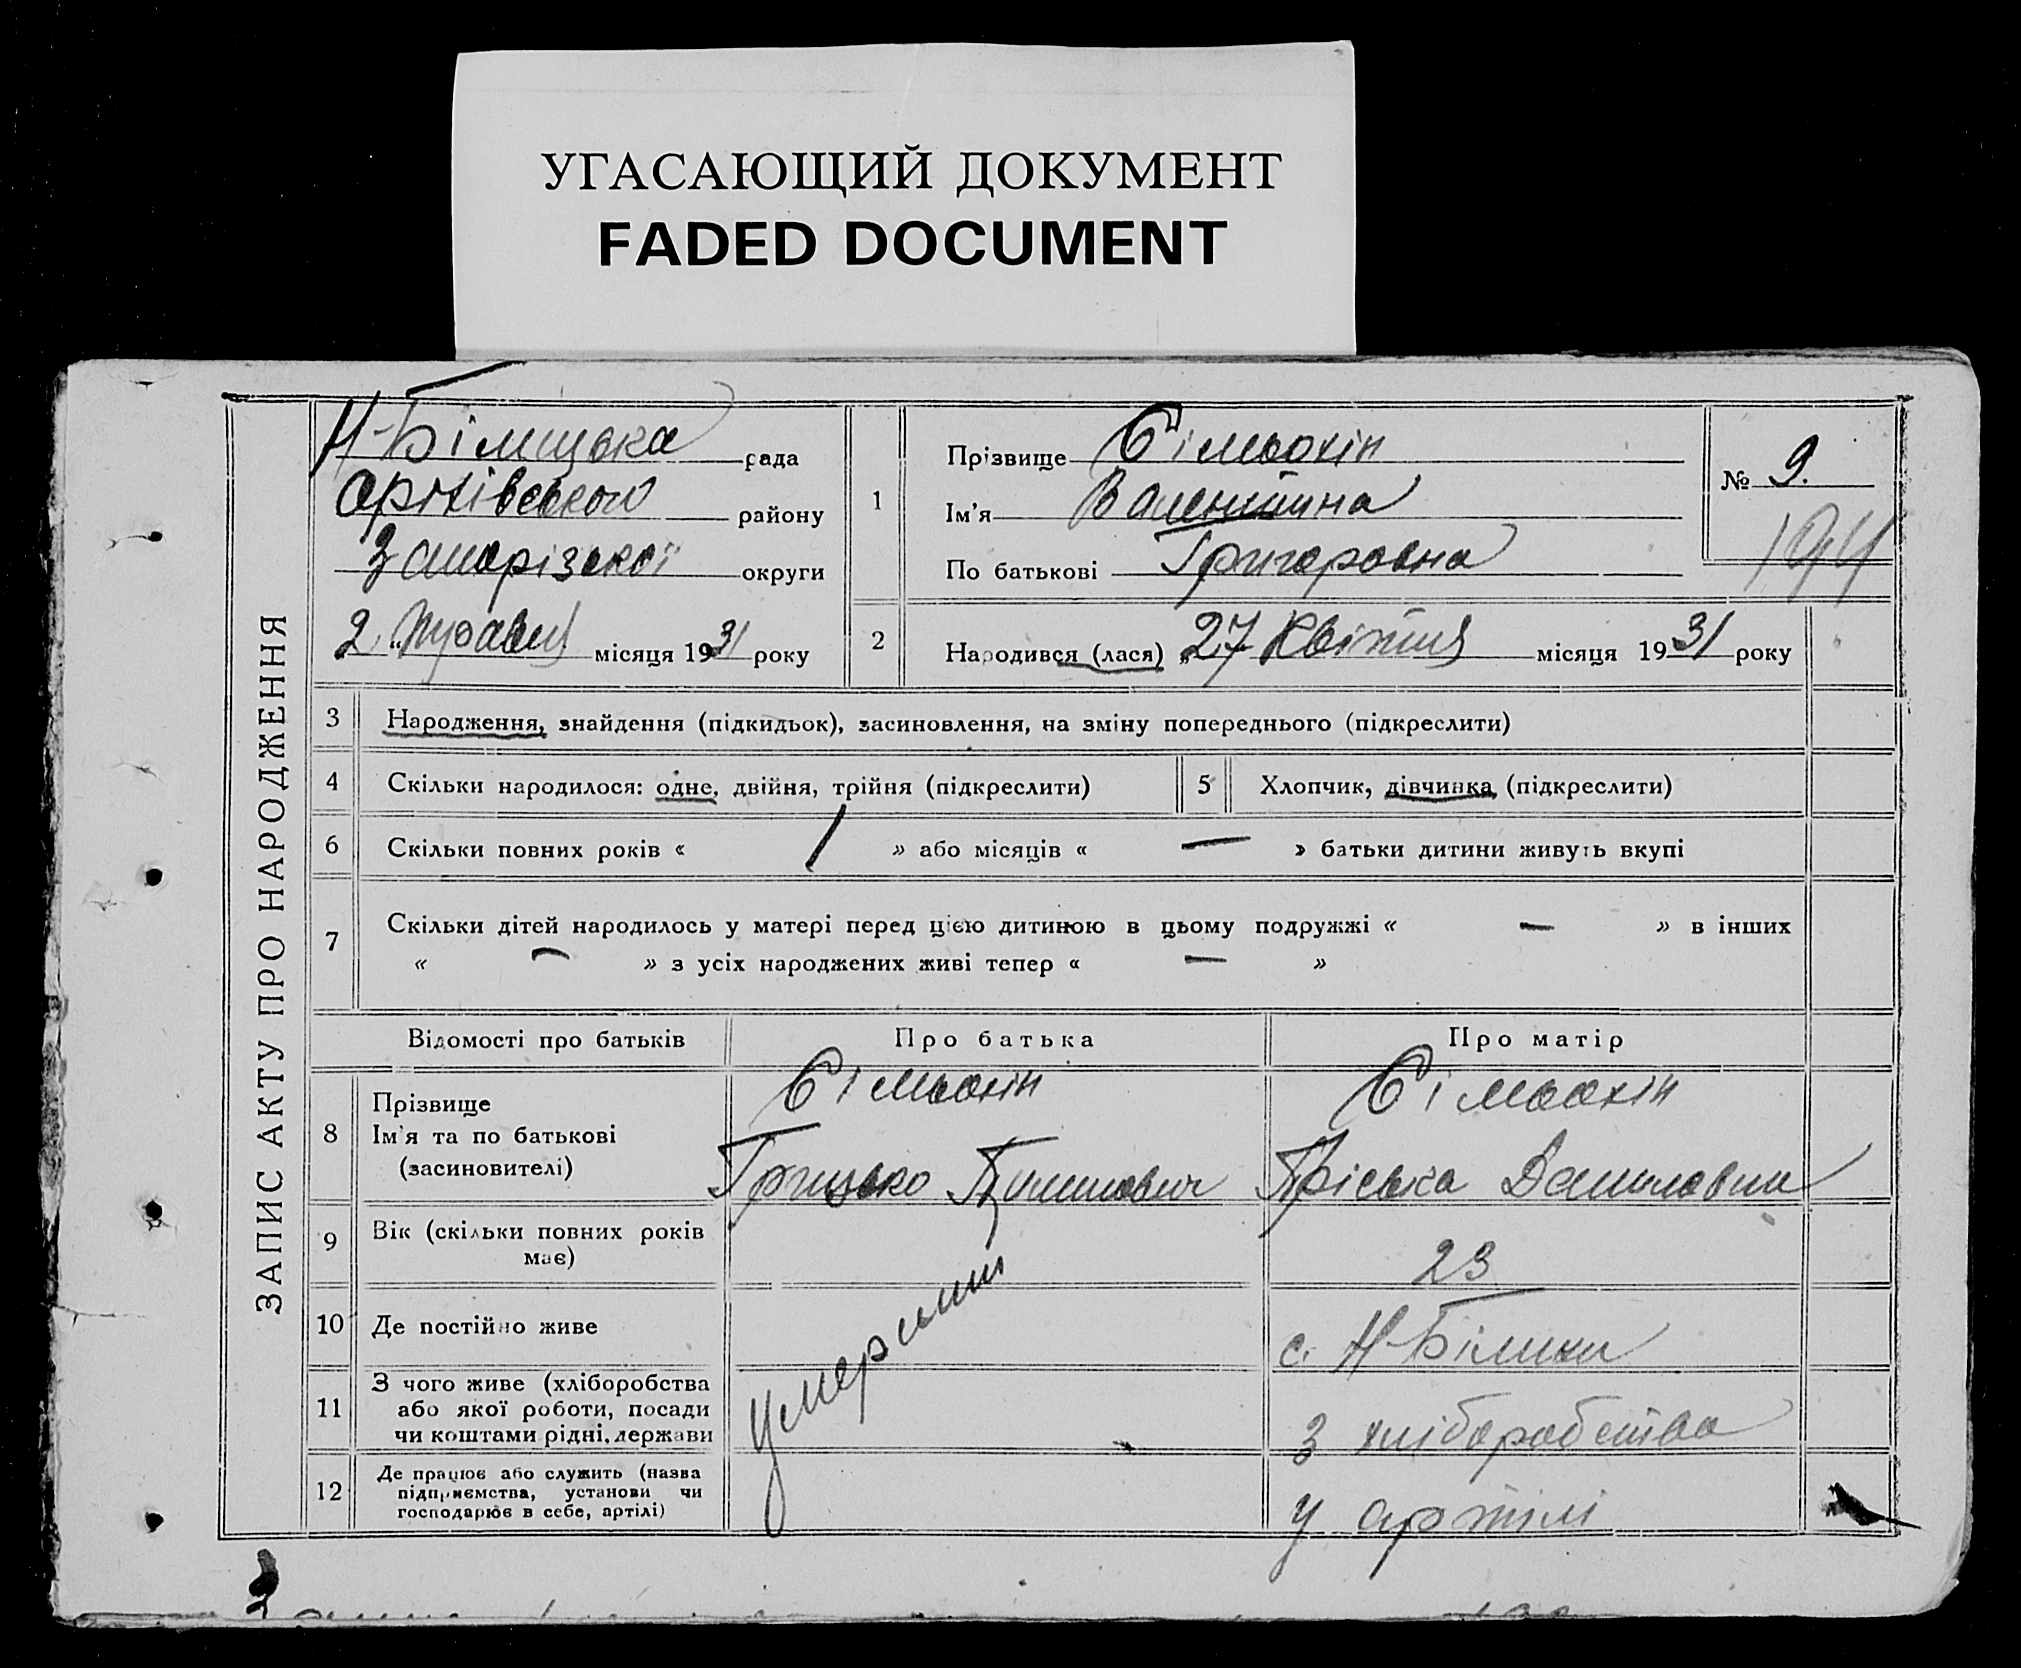 УГАСАЮЩИЙ ДОКУМЕНТ
FADED DOCUMENT
ЗАПИС АКТУ ПРО НАРОДЖЕННЯ
рада
району
Запорізької округи
2 Травня місяця 1931 року
1
Прізвище Сімьохін
Ім'я Валентина
По батькові Григоровна
№ 9.
194
2
Народився (лася) „27 Квітня місяця 1931 року
3 Народження, знайдення (підкидьок), засиновлення, на зміну попереднього (підкреслити)
4 Скільки народилося: одне, двійня, трійня (підкреслити)
5 Хлопчик, дівчинка (підкреслити)
6 Скільки повних років « / » або місяців « — » батьки дитини живуть вкупі
7 Скільки дітей народилось у матері перед цією дитиною в цьому подружжі « — » в інших
« — » з усіх народжених живі тепер « — »
Відомості про батьків Про батька Про матір
8
Прізвище
Ім'я та по батькові
(засиновителі)
Сімьохін
Грицько
Сімьохін
Пріська Даниловна
9
Вік (скільки повних років
має)
23
10 Де постійно живе
с. Н-Білики
11
З чого живе (хліборобства
або якої роботи, посади
чи коштами рідні, держави
з хліборобства
12
Де працює або служить (назва
підприємства, установи чи
господарює в себе, артілі)
у артілі
умерший